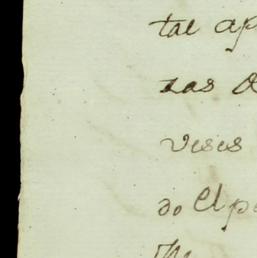 tal ap
zas d
veses
do el p